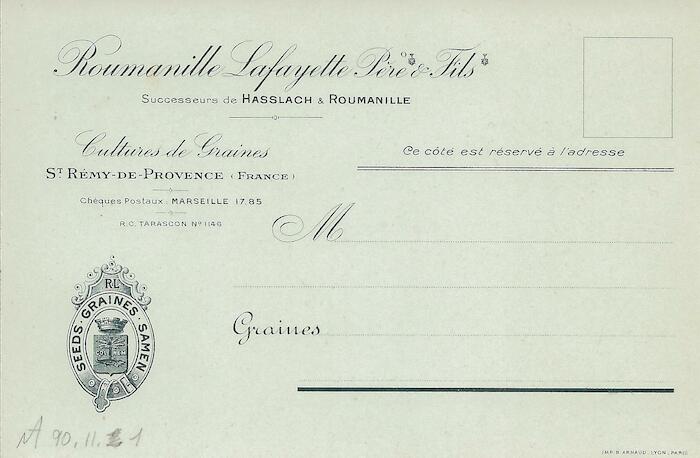 Roumanille Lafayette Père & Fils
Successeurs de HASSLACH & ROUMANILLE
Cultures de Graines
ST RÉMY-DE-PROVENCE (FRANCE)
Chèques Postaux: MARSEILLE 17.85
R.C. TARASCON No 1146
Ce côté est réservé à l'adresse
M
Graines
RL
SEEDS · GRAINES · SAMEN
90.11.1
IMP. B. ARNAUD. LYON. PARIS